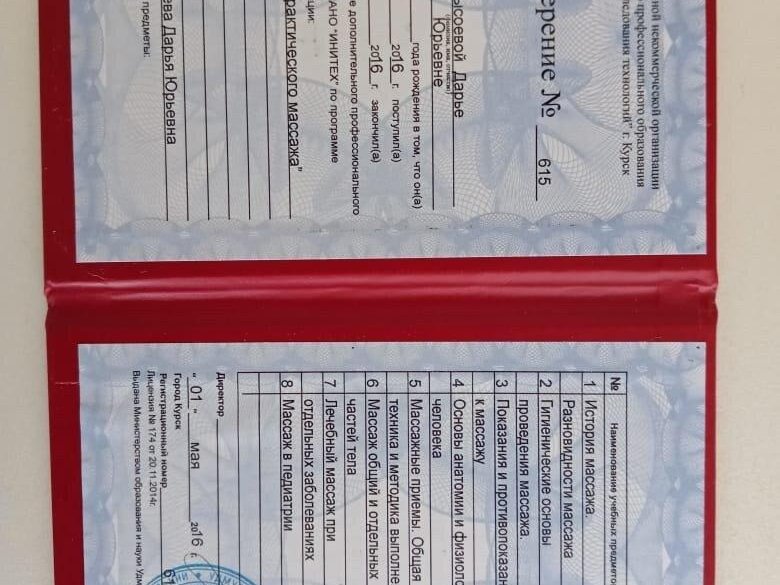 ной некоммерческой организации
профессионального образования
технологий" г. Курск
ерение № 615
ысоевой Дарье
Юрьевне
года рождения в том, что он(а)
2016 г. поступил(а)
2016 г. закончил(а)
е дополнительного профессионального
АНО "ИНИТЕХ" по программе
ции:
рактического массажа"
ева Дарья Юрьевна
предметы:
№ Наименование учебных предмето
1 История массажа.
Разновидности массажа
2 Гигиенические основы
проведения массажа.
3 Показания и противопоказан
к массажу
4 Основы анатомии и физиоло
человека
5 Массажные приемы. Общая
техника и методика выполне
6 Массаж общий и отдельных
частей тела
7 Лечебный массаж при
отдельных заболеваниях
8 Массаж в педиатрии
Директор
" 01 " мая 2016 г.
Город Курск
Регистрационный номер 61
Лицензия № 174 от 20.11.2014г.
Выдана Министерством образования и науки Удм